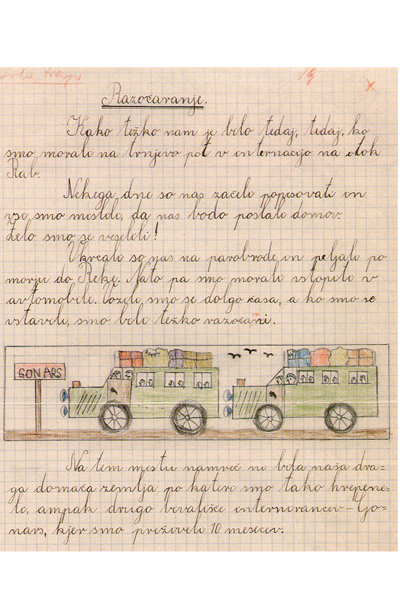 Razočaranje.
Kako težko nam je bilo tedaj, tedaj, ko
smo morali na trnjevo pot v internacijo na otok
Rab.
Nekega dne so nas začeli popisovati in
vse smo mislile, da nas bodo poslale domov.
Zelo smo se veselili!
Vkrcali so nas na parobrode in peljalo po
morju do Reke. Nato pa smo morali vstopiti v
avtomobile. Vozili smo se dolgo časa, a ko smo se
vstavile, smo bili težko razočarani.
GONARS
Na tem mestu namreč ni bila naša dra-
ga domača zemlja po kateri smo tako hrepene-
li, ampak drugo bivališče internirancev - Go-
nars, kjer smo preživeli 10 mesecev.